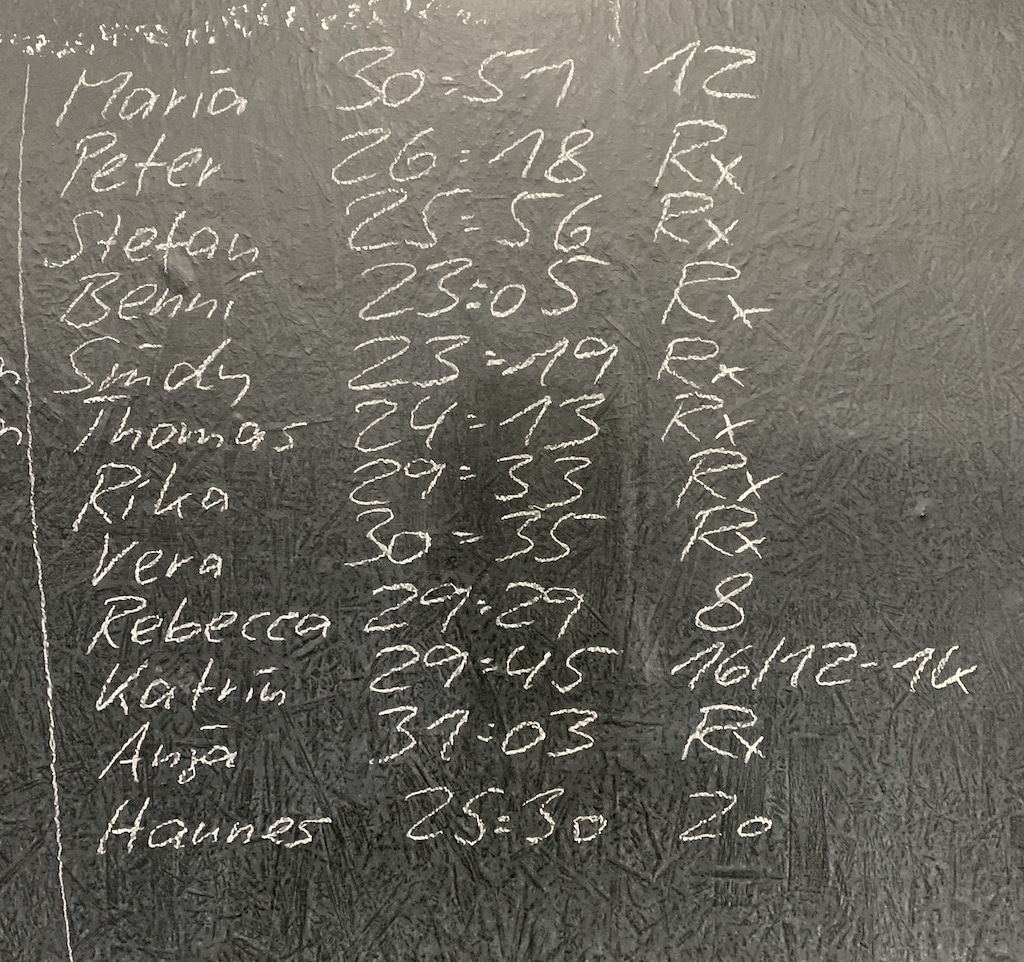 Maria 30:51 12
Peter 26:18 Rx
Stefan 25:56 Rx
Benni 23:05 Rx
Sindy 23:19 Rx
Thomas 24:13 Rx
Rika 29:33 Rx
Vera 30:35 Rx
Rebecca 29:29 8
Katrin 29:45 16/12-14
Anja 31:03 Rx
Hannes 25:30 20